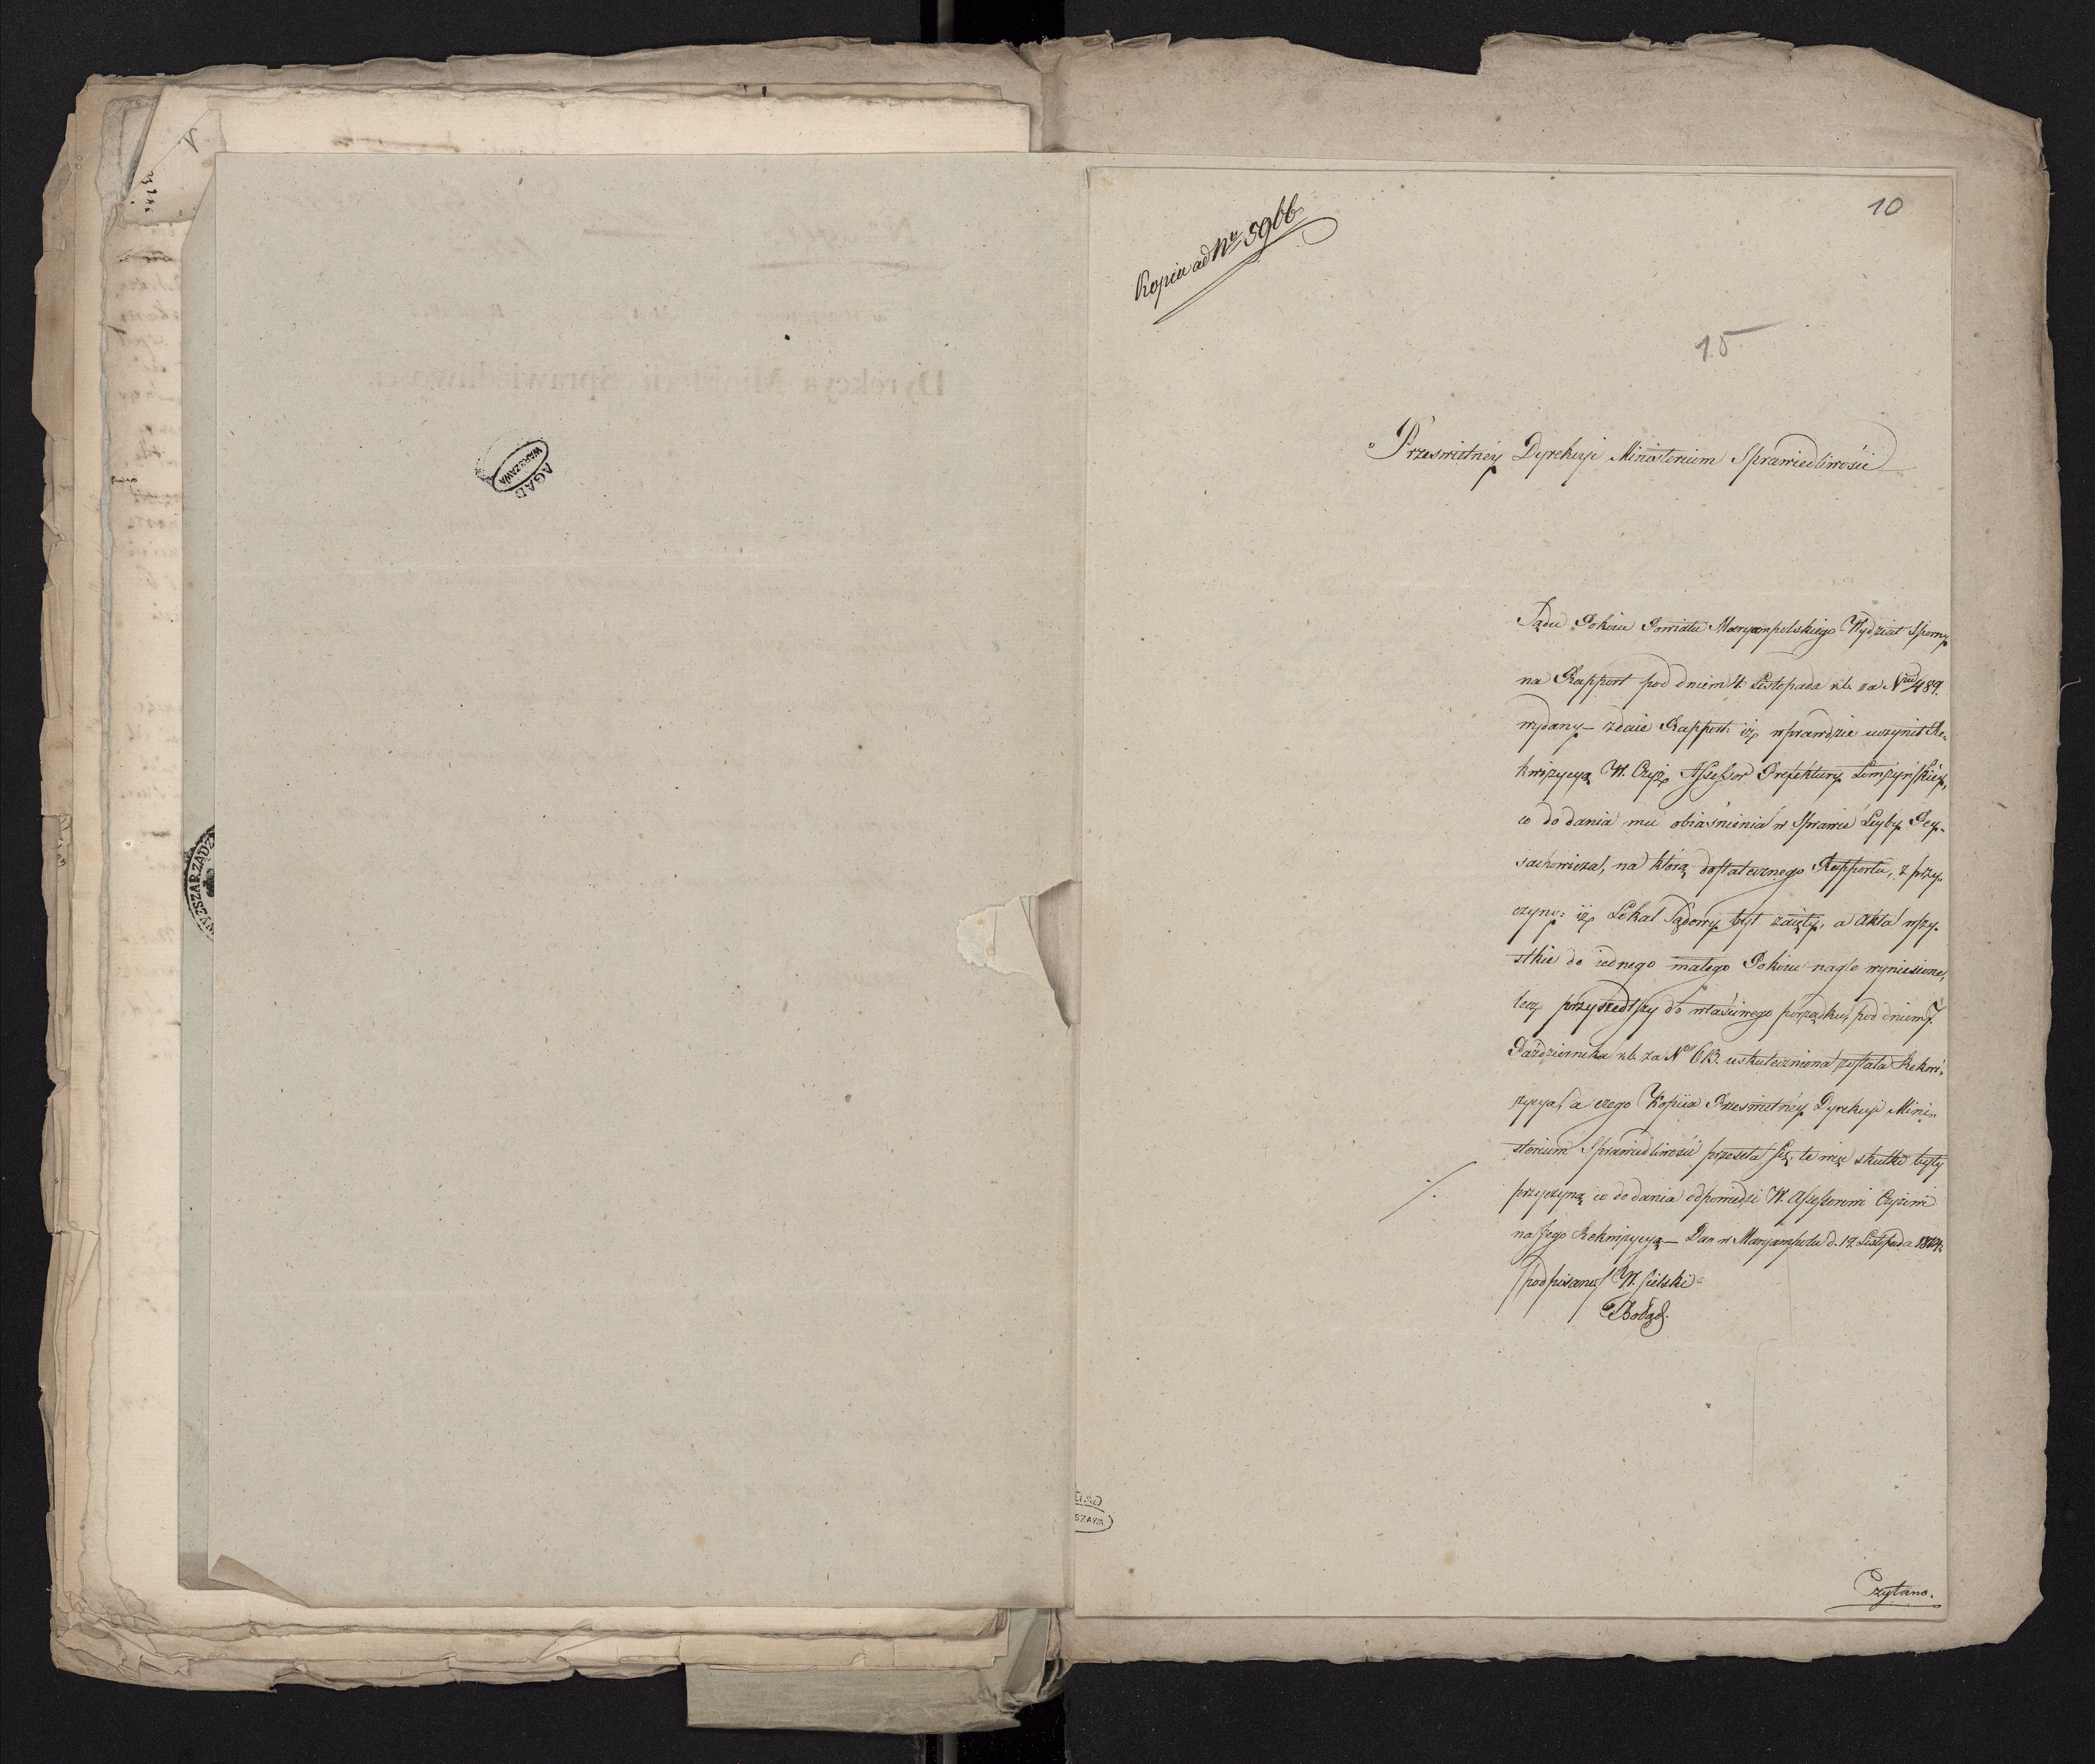 10
Kopia ad Nr 5966
15
Prześwietney Dyrekcyi Ministerium Sprawiedliwości
Sądu Pokoiu Powiatu Maryampolskiego Wydział Sporny
na Rapport pod dniem 4. Listopada r.b. za Nrem 489.
wydany – zdaie Rapport: iż wprawdzie uczynił Re-
kwizycyą W. Czyż Assessor Prefektury Łomżyńskiey,
co do dania mu obiaśnienia w Sprawie Leyby Pey-
sachowicza, na którą dostatecznego Rapportu, z przy-
czyny: iż Lokal Sądowy był zaięty, a Akta wszy-
stkie do iednego małego Pokoiu nagle wyniesione,
lecz przyszedłszy do właściwego porządku, pod dniem 7.
Października r.b. za Nrem 613. uskuteczniona została Rekwi-
zycya, a czego Kopiia Prześwietney Dyrekcyi Mini-
sterium Sprawiedliwości przesyła się, te więc skutki były
przyczyną co do dania odpowiedzi W. Assessorowi Czyżowi
na Jego Rekwizycyą – Dan w Maryampolu d. 19. Listopada 1814.
/podpisany/ W. Sielski
Czytano.
AGAD
WARSZAWA